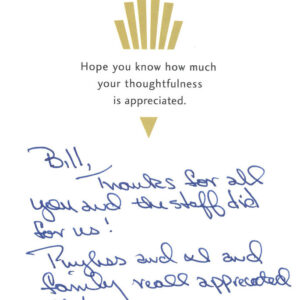 Hope you know how much
your thoughtfulness
is appreciated.
Bill,
Thanks for all
you and the staff did
for us!
and and
family reall appreciated